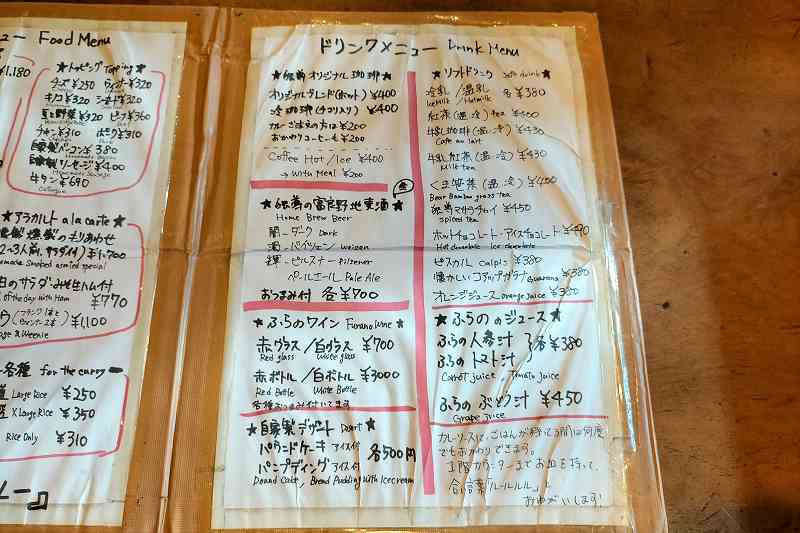 ュー Food Menu
¥1,180
★トッピング Topping★
チーズ ¥250 ウィンナー ¥320
キノコ ¥320 シーフード ¥320
豆と野菜 ¥320 ビーフ ¥360
チキン ¥310 ポーク ¥310
自家製ベーコン ¥380
Homemade Bacon
自家製ソーセージ ¥400
Homemade Sausage
牛タン ¥690
★アラカルト a la carte★
自家製燻製の盛りあわせ
(2~3人前、サラダ付) ¥1,700
Homemade Smoked assorted special
日のサラダ・みそ生ハム付
of the day with Ham ¥770
(フランク1本と ウィンナー2本) ¥1,100
age & Weenie
各種 for the curry
Large Rice ¥250
X Large Rice ¥350
Rice Only ¥310
ドリンクメニュー Drink Menu
オリジナル 珈琲★
オリジナルブレンド(ホット) ¥400
冷珈琲(チコリ入り) ¥400
カレーご注文の方は ¥200
おかわりコーヒーも ¥200
Coffee Hot/Ice ¥400
→ With Meal ¥200
の富良野地麦酒★
Home Brew Beer
闇-ダーク Dark
酒-バイツェン weizen
輝-ピルスナー Pilsener
ペールエール Pale Ale
おつまみ付 各¥700
★ふらのワイン Furano Wine★
赤グラス/白グラス ¥700
Red glass White glass
赤ボトル/白ボトル ¥3000
Red Bottle White Bottle
各種おつまみ付いてます
★自家製デザート Desert★
パウンドケーキ アイス付 各500円
パンプディング アイス付
Pound Cake, Bread Pudding with Icecream
★ソフトドリンク Soft drink★
冷乳/温乳 各¥380
Icemilk/Hotmilk
紅茶(温・冷) tea ¥400
牛乳珈琲(温・冷) ¥430
Cafe au lait
牛乳紅茶(温・冷) ¥430
Milk tea
くま笹茶(温・冷) ¥400
Bear Bamboo grass tea
マサラチャイ ¥450
spiced tea
ホットチョコレート・アイスチョコレート ¥490
Hot chocolate Ice chocolate
ピスカル calpis ¥380
懐かしいコアップガラナ Guarana ¥380
オレンジジュース orange juice ¥380
★ふらののジュース★
ふらの人参汁 各¥380
ふらのトマト汁
Carrot juice, Tomato juice
ふらのぶどう汁 ¥450
Grape juice
カレーソースは、ごはんが残ってる間は何度
でもおかわりできます。
1階カウンターまでお皿を持って、
合言葉「ルールルル」と
おねがいします!